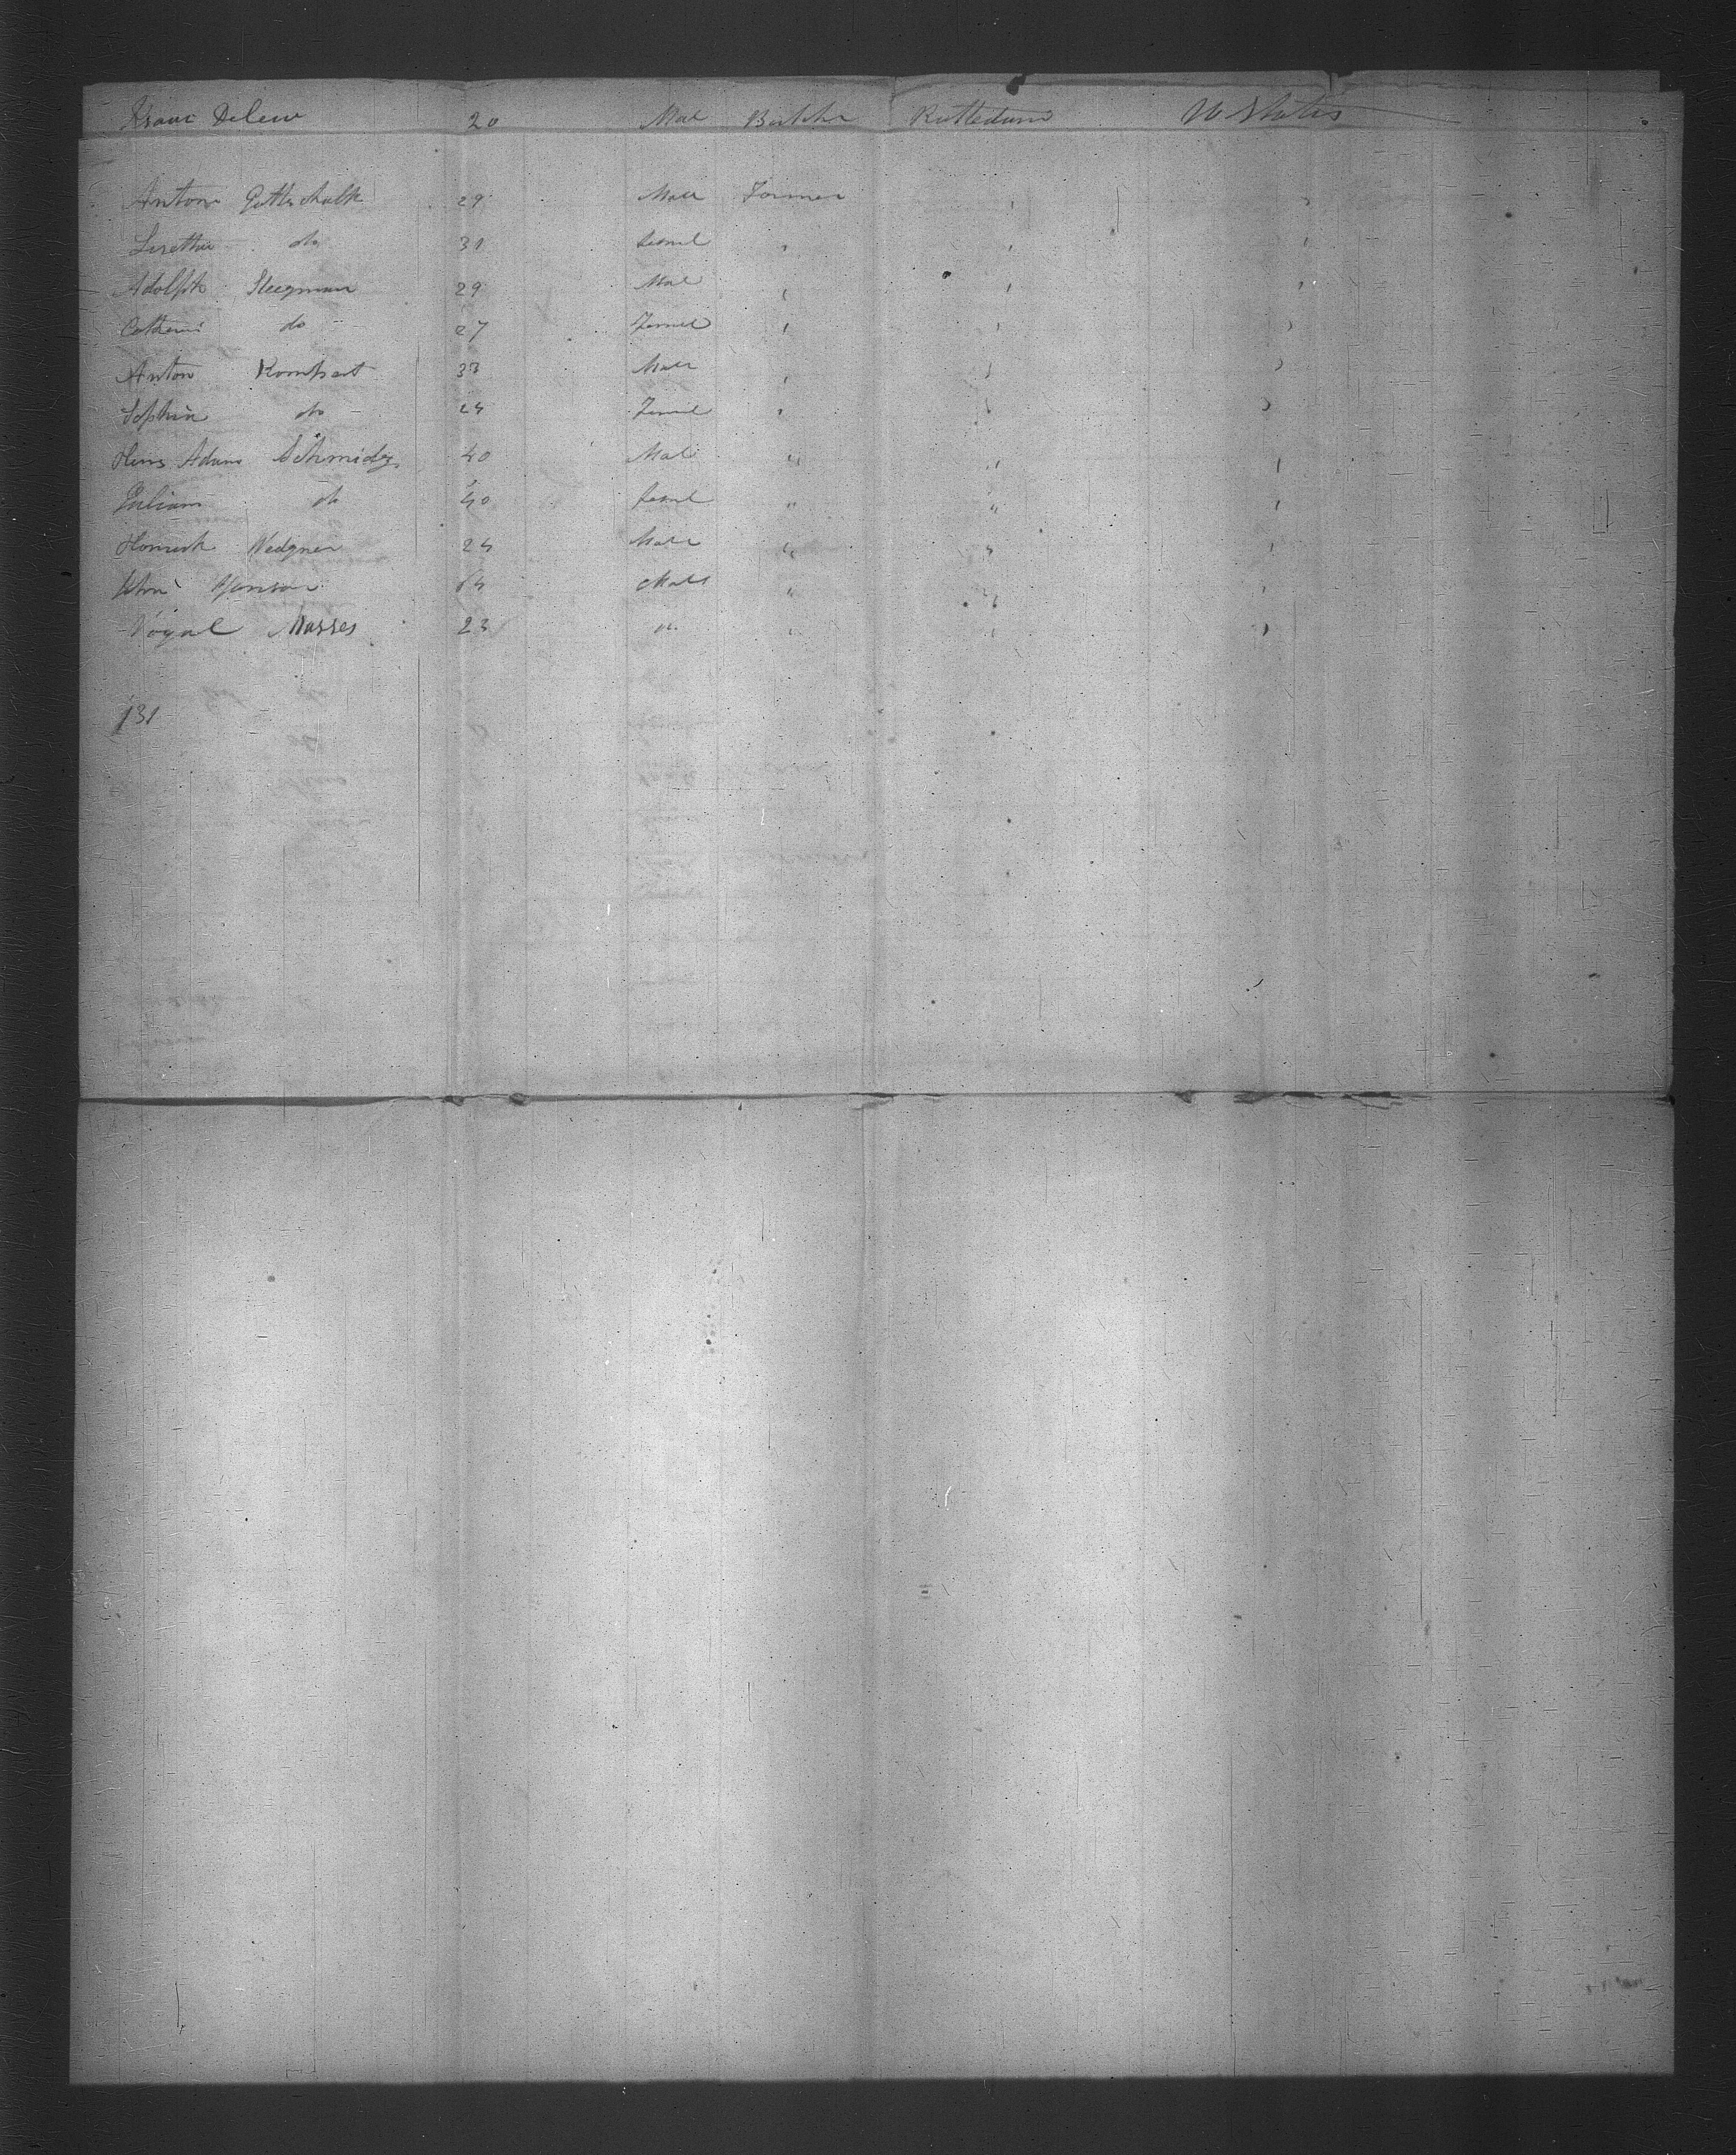 Delew 20 Mal Butcher Rotterdam U States
Anton Gottschalk 29 Male Farmer " "
Lisette do 31 Femel " " "
Adolph Stegman 29 Mal " " "
Cathrin do 27 Femel " " "
Anton Romhart 33 Male " " "
Sophia do 24 Femel " " "
Hens Adam Schmidz 40 Male " " "
Juliana do 40 Femel " " "
Honerek Wedgner 24 Male " " "
Hanson 64 Male " " "
Vogal Masses 23 " " " "
131